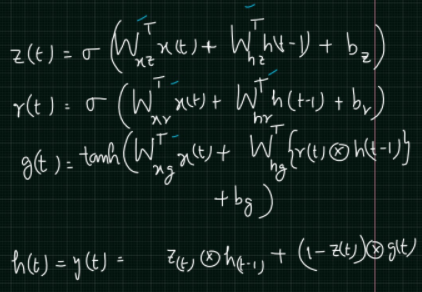 z(t) = σ (W_xz^T x(t) + W_hz^T h(t-1) + b_z)
r(t) = σ (W_xr^T x(t) + W_hr^T h(t-1) + b_r)
g(t) = tanh (W_xg^T x(t) + W_hg^T {r(t) ⊗ h(t-1)}
+ b_g)
h(t) = y(t) = z(t) ⊗ h(t-1) + (1 - z(t)) ⊗ g(t)